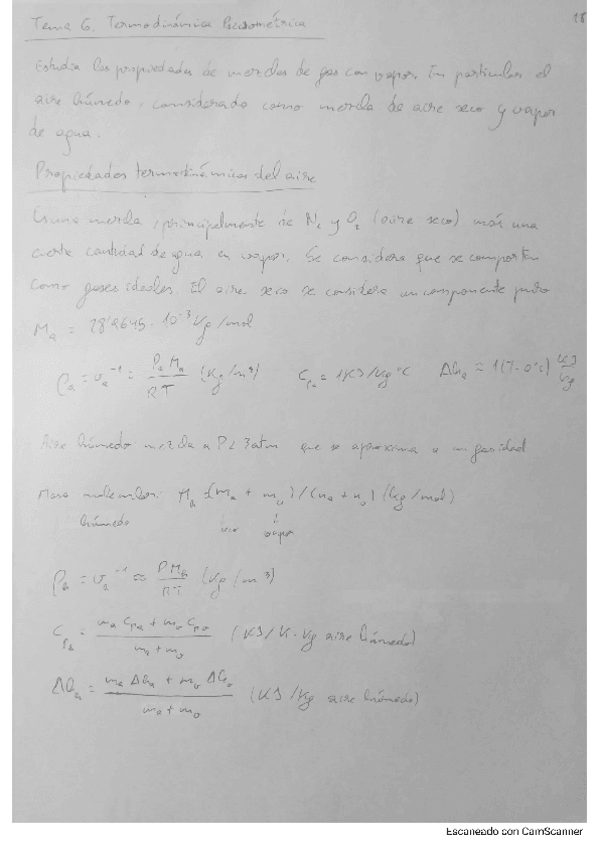 18
Tema 6. Termodinámica Psicrométrica
Estudia las propiedades de mezclas de gas con vapor. En particular el
aire húmedo, considerado como mezcla de aire seco y vapor
de agua.
Propiedades termodinámicas del aire
Es una mezcla, principalmente de N₂ y O₂ (aire seco) más una
cierta cantidad de agua en vapor. Se considera que se comportan
como gases ideales. El aire seco se considera un componente puro
Mₐ = 28'9645·10⁻³ Kg/mol
ρₐ = vₐ⁻¹ = PₐMₐ/RT (Kg/m³) C_pₐ = 1 KJ/Kg°C Δhₐ = 1(T-0°C) KJ/Kg
Aire húmedo mezcla a P<3atm que se aproxima a un gas ideal
Masa molecular: M_h = (mₐ + m_v)/(nₐ + n_v) (Kg/mol)
húmedo aire vapor
ρ_h = v_h⁻¹ ≈ PM_h/RT (Kg/m³)
C_p_h = (mₐ C_pₐ + m_v C_p_v)/(mₐ + m_v) (KJ/K·Kg aire húmedo)
Δh_h = (mₐ Δhₐ + m_v Δh_v)/(mₐ + m_v) (KJ/Kg aire húmedo)
Escaneado con CamScanner